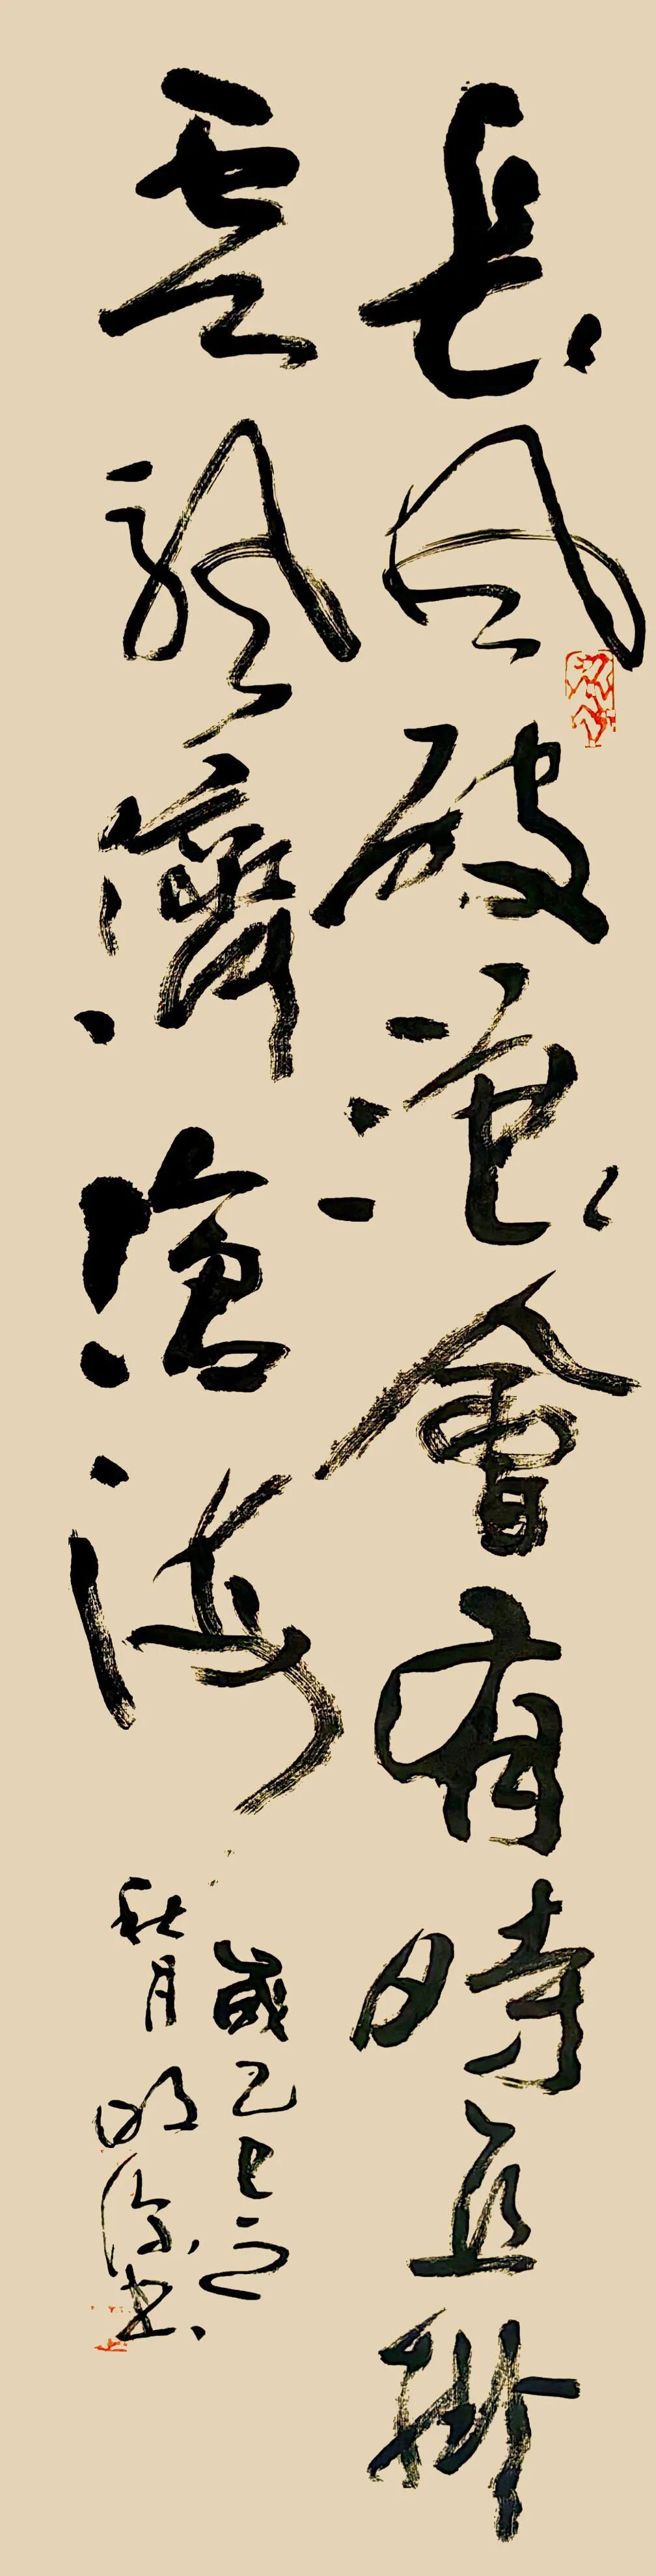 長風破浪會有時直掛
雲颿濟滄海
歲乙巳之
秋月明海書